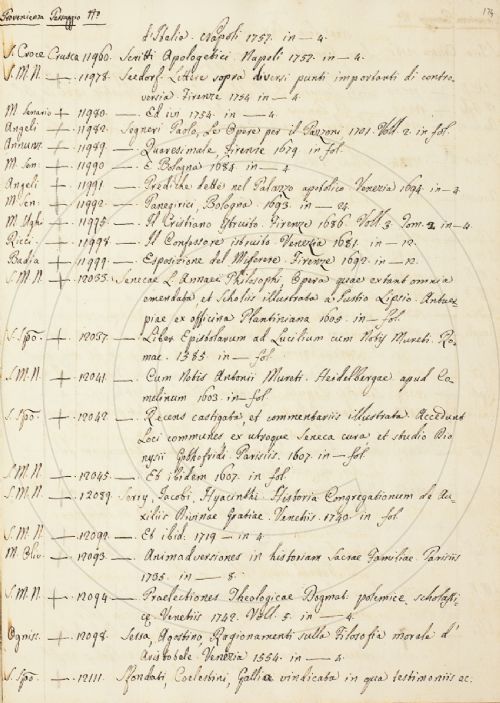 Provenienza Passaggio No 174
d'Italia. Napoli 1757. in — 4.
S. Croce Crusca 11960. Scritti Apologetici. Napoli 1757. in — 4.
S. M. N. + 11978. Seedorf. Lettere sopra diversi punti importanti di contro-
versia. Firenze 1754 in — 4.
M. Senario + 11980. — Ed ivi 1754. in — 4.
Angeli + 11982. Segneri Paolo, Le Opere per il Parroni 1701. Voll. 2. in fol.
Annunz. + 11989. — Quaresimale, Firenze 1679. in fol.
M. Sen. + 11990 — E Bologna 1684. in — 4.
Angeli + 11991 — Prediche dette nel Palazzo apostolico Venezia 1694. in — 4.
M. Sen. + 11992. — Panegirici, Bologna 1693. in — 24.
M. Ughi + 11995. — Il Cristiano Istruito. Firenze 1686. Voll. 3. Tom. 2. in — 4.
Ricci + 11998. — Il Confessore istruito. Venezia 1681. in — 12.
Badia + 11999. — Esposizione del Miserere. Firenze 1692. in — 12.
S. M. N. + 12035. Senecae L. Annaei Philosophi, Opera quae extant omnia
emendata, et Scholiis illustrata a Justo Lipsio. Antuer-
piae ex officina Plantiniana 1605. in — fol.
S. Spo. + 12037. — Liber Epistolarum ad Lucilium cum Notis Mureti. Ro-
mae. 1585. in — fol.
S. M. N. + 12041. — Cum Notis Antonii Mureti. Heidelbergae apud Co-
melinum 1603. in — fol.
S. Spo. + 12042. — Recens castigata, et commentariis illustrata. Accedunt
Loci communes ex utroque Seneca cura, et studio Dio-
nysii Gothofridi. Parisiis. 1607. in — fol.
S. M. N. + 12045. — Et ibidem 1607. in fol.
S. M. N. + 12089. Serry, Jacobi, Hyacinthi. Historia Congregationum de Au-
xiliis Divinae Gratiae. Venetiis. 1740. in fol.
S. M. N. — 12092. — Et ibid. 1719 — in 4.
M. Oliv. — 12093. — Animadversiones in historiam Sacrae Familiae. Parisiis
1735. in — 8.
S. M. N. + 12094. — Praelectiones Theologicae Dogmat. polemice, scholasti-
ce. Venetiis 1742. Voll. 5. in — 4.
Ogniss. + 12098. Sessa, Agostino, Ragionamenti sulla Filosofia morale d'
Aristotele. Venezia 1554. in — 4.
S. Spo. + 12111. Sfondati, Coelestini, Gallia vindicata in qua testimoniis ec.